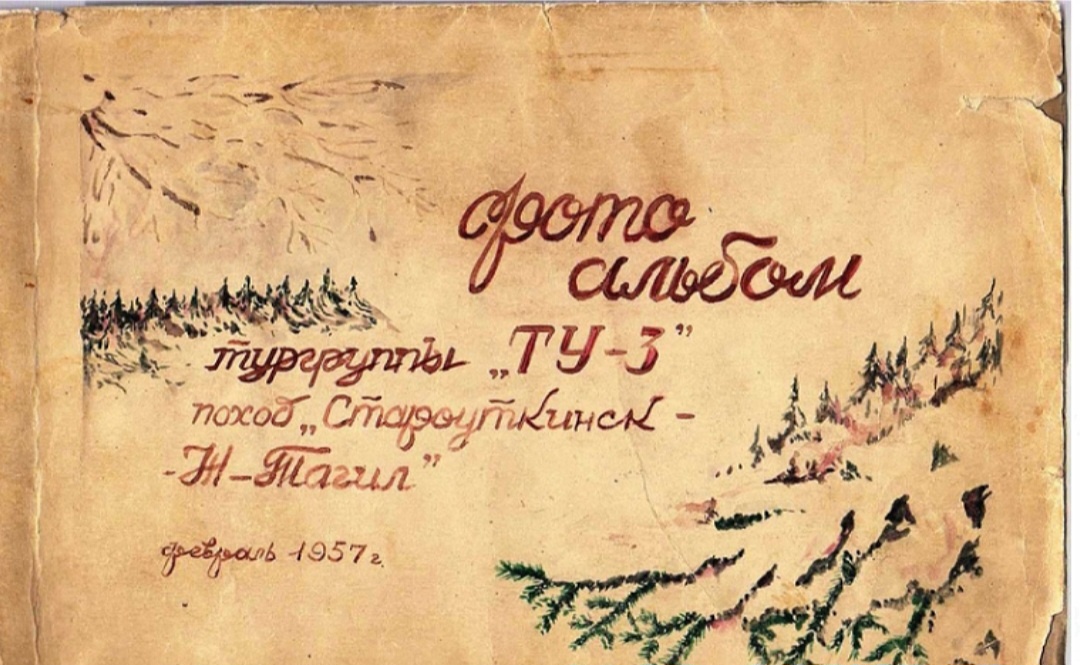 фото
альбом
тургруппы „ТУ-3”
поход „Староуткинск -
-Н-Тагил”
февраль 1957 г.